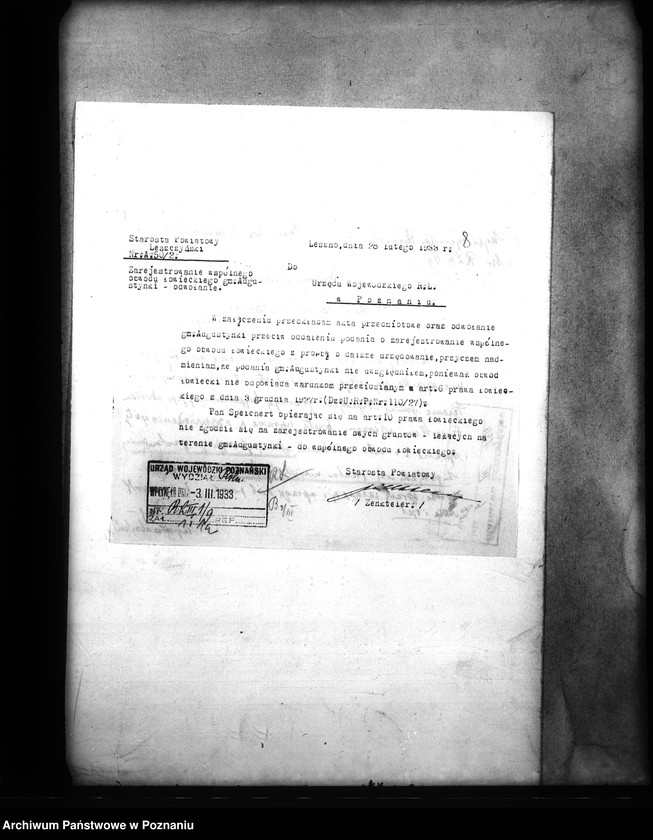 8
Starosta Powiatowy
Leszczyński
Nr.A.50/2.
Leszno,dnia 28 lutego 1933 r.
Zarejestrowanie wspólnego
obwodu łowieckiego gm.Augu-
stynki - odwołanie.
Do
Urzędu Wojewódzkiego R.L.
w Poznaniu.
W załączeniu przedkładam akta przedmiotowe oraz odwołanie
gm.Augustynki przeciw oddaleniu podania o zarejestrowanie wspólne-
go obwodu łowieckiego z prośbą o dalsze urzędowanie,przyczem nad-
mieniam,że podania gm.Augustynki nie uwzględniłem,ponieważ obwód
łowiecki nie odpowiada warunkom przewidzianym w art.6 prawa łowiec-
kiego z dnia 3 grudnia 1927r.(Dz.U.R.P.Nr.110/27).
Pan Speichert opierając się na art.10 prawa łowieckiego
nie zgodził się na zarejestrowanie swych gruntów - leżących na
terenie gm.Augustynki - do wspólnego obwodu łowieckiego.
Starosta Powiatowy
/ Zenkteler. /
URZĄD WOJEWÓDZKI POZNAŃSKI
WYDZIAŁ
-3.III.1933
NR.
ZAŁ. REF.
Archiwum Państwowe w Poznaniu